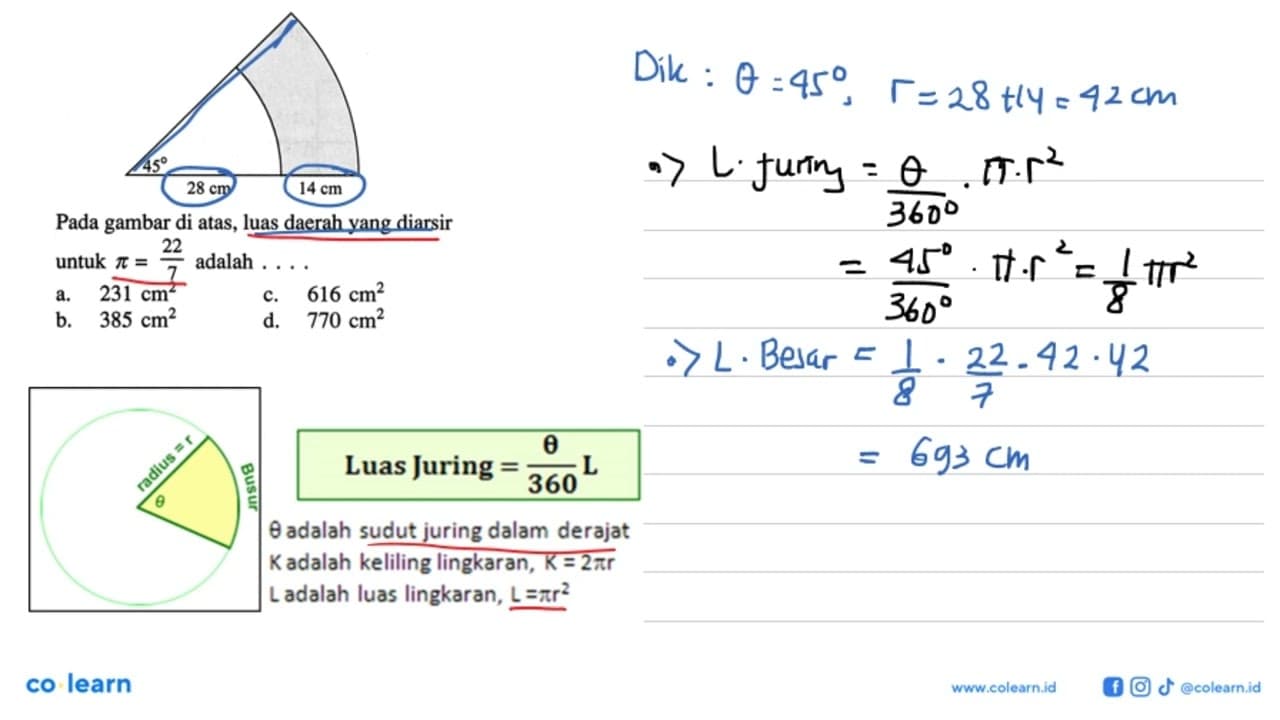 45°
28 cm
14 cm
Pada gambar di atas, luas daerah yang diarsir
untuk π = 22/7 adalah . . . .
a. 231 cm² c. 616 cm²
b. 385 cm² d. 770 cm²
radius = r
θ
Busur
Luas Juring = θ/360 L
θ adalah sudut juring dalam derajat
K adalah keliling lingkaran, K = 2πr
L adalah luas lingkaran, L =πr²
Dik : θ = 45°, r = 28 + 14 = 42 cm
•> L. juring = θ/360° . π.r²
= 45°/360° . π.r² = 1/8 πr²
•> L. Besar = 1/8 . 22/7 . 42 . 42
= 693 cm
co learn
www.colearn.id
@colearn.id